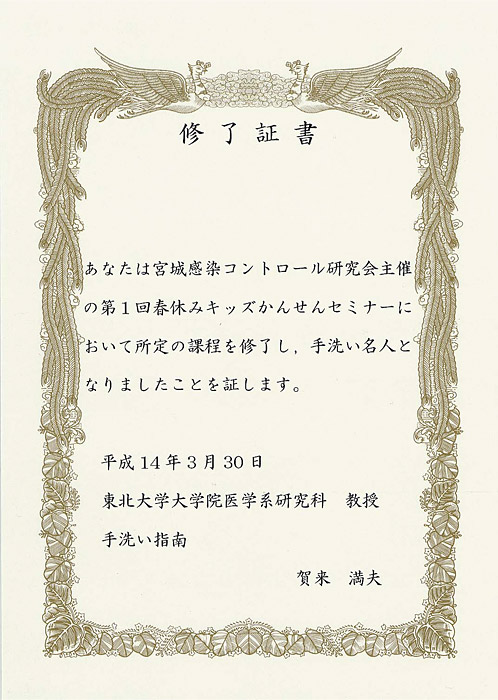 修了証書
あなたは宮城感染コントロール研究会主催
の第1回春休みキッズかんせんセミナーに
おいて所定の課程を修了し，手洗い名人と
なりましたことを証します。
平成14年3月30日
東北大学大学院医学系研究科　教授
手洗い指南
賀来　満夫